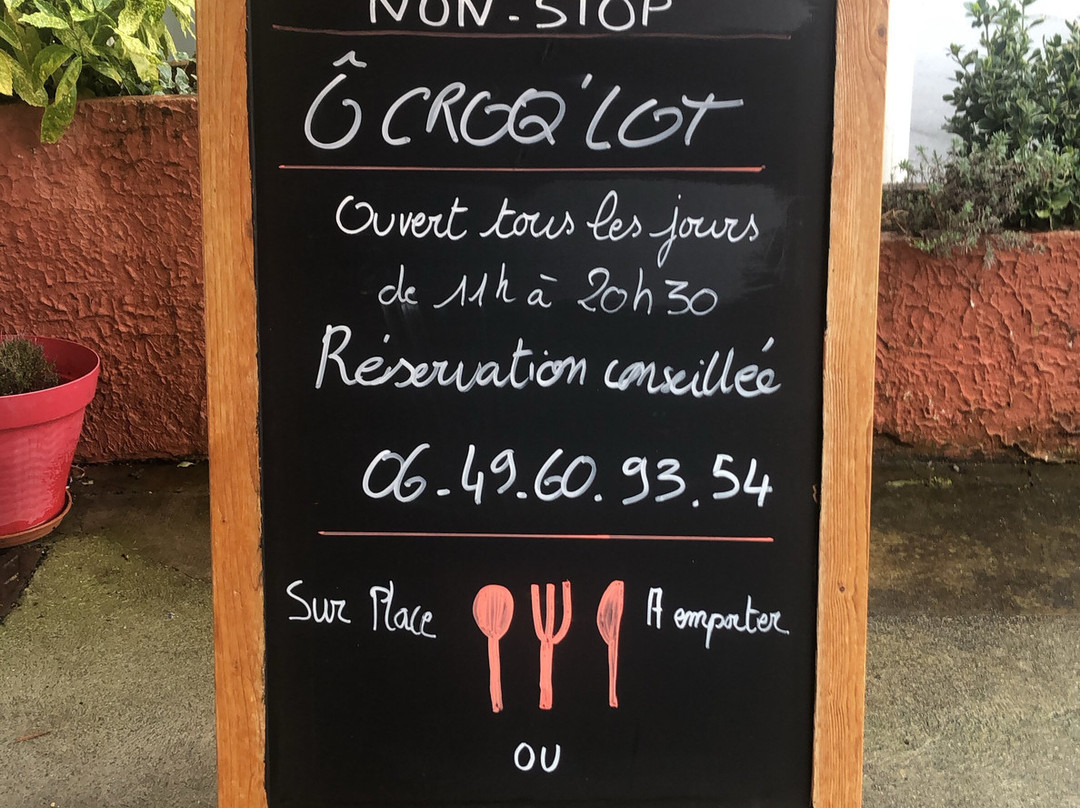 NON-STOP
Ô CROQ'LOT
Ouvert tous les jours
de 11h à 20h30
Réservation conseillée
06-49.60.93.54
Sur Place A emporter
OU